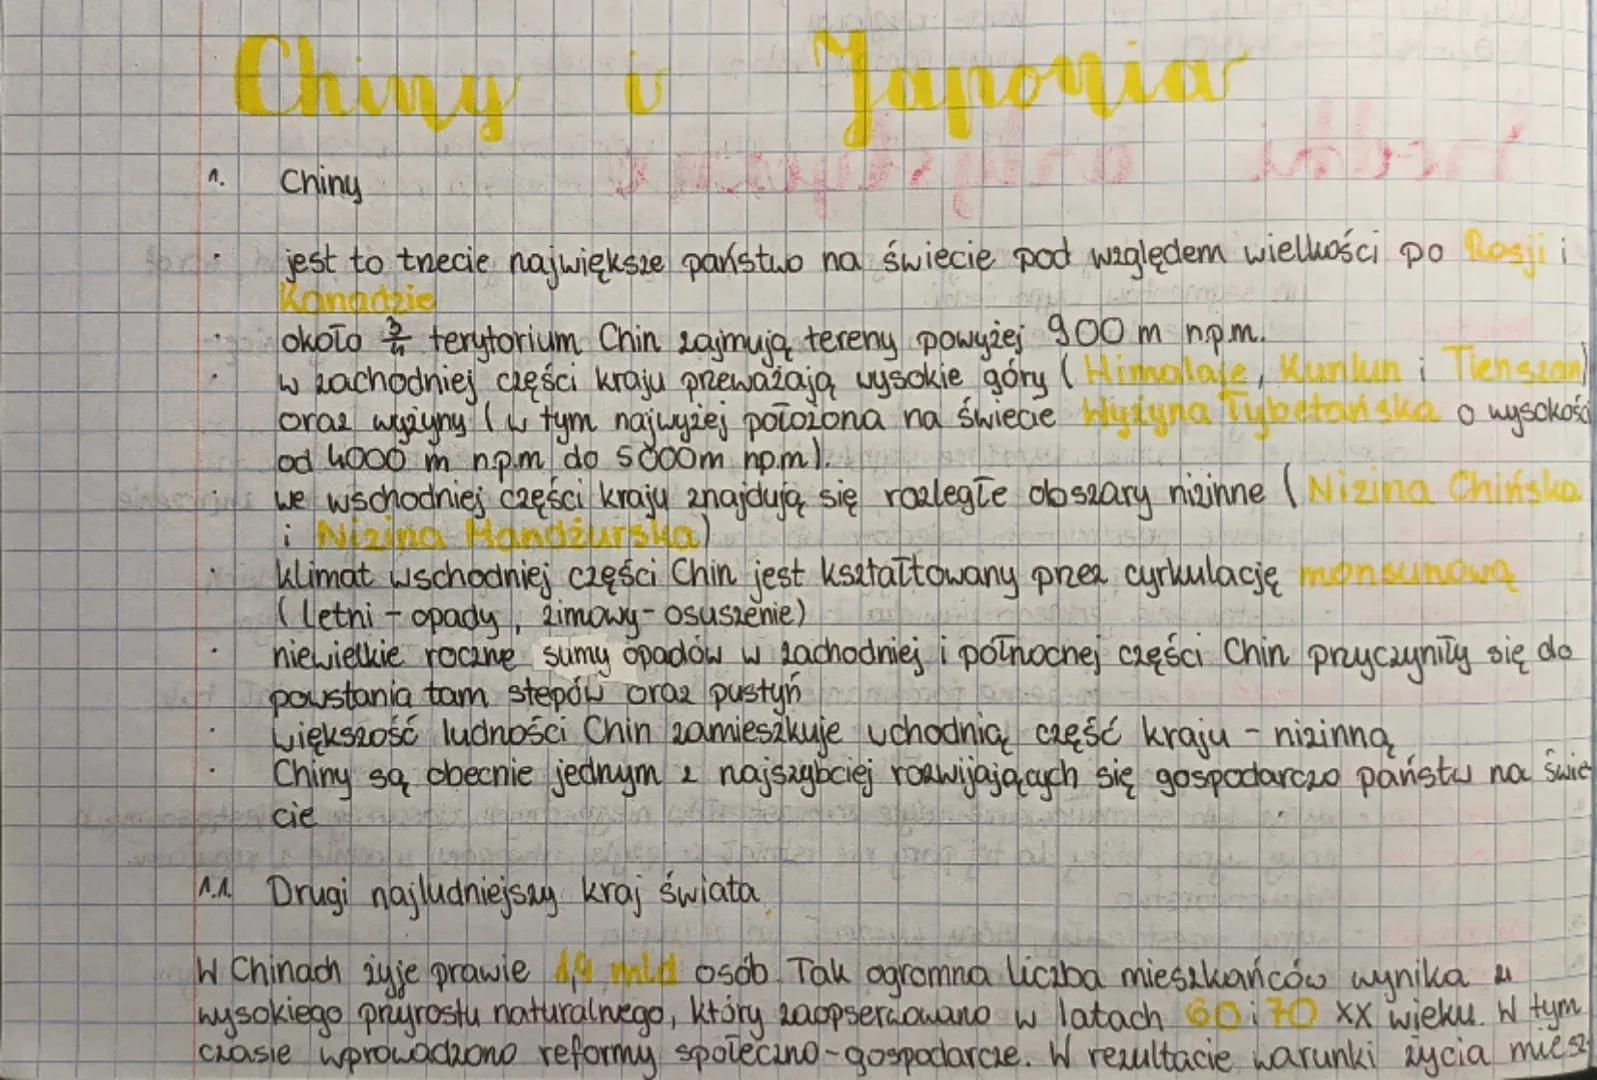 Chiny i Japonia
1. Chiny
· jest to trzecie największe państwo na świecie pod względem wielkości po Rosji i
Kanadzie
· około 3/4 terytorium Chin zajmują tereny powyżej 900 m n.p.m.
· w zachodniej części kraju przeważają wysokie góry (Himalaje, Kunlun i Tienszan)
oraz wyżyny (w tym najwyżej położona na świecie Wyżyna Tybetańska o wysokości
od 4000 m n.p.m do 5000m np.m).
· we wschodniej części kraju znajdują się rozległe obszary nizinne (Nizina Chińska
i Nizina Mandżurska)
· klimat wschodniej części Chin jest kształtowany przez cyrkulację monsunową
(letni - opady, zimowy - osuszenie)
· niewielkie roczne sumy opadów w zachodniej i północnej części Chin przyczyniły się do
powstania tam stepów oraz pustyń
· większość ludności Chin zamieszkuje wchodnią część kraju - nizinną
· Chiny są obecnie jednym z najszybciej rozwijających się gospodarczo państw na świe
cie
1.1. Drugi najludniejszy kraj świata
W Chinach żyje prawie 1,4 mld osób. Tak ogromna liczba mieszkańców wynika z
wysokiego przyrostu naturalnego, który zaopserwowano w latach 60 i 70 XX wieku. W tym
czasie wprowadzono reformy społeczno-gospodarcze. W rezultacie warunki życia miesz